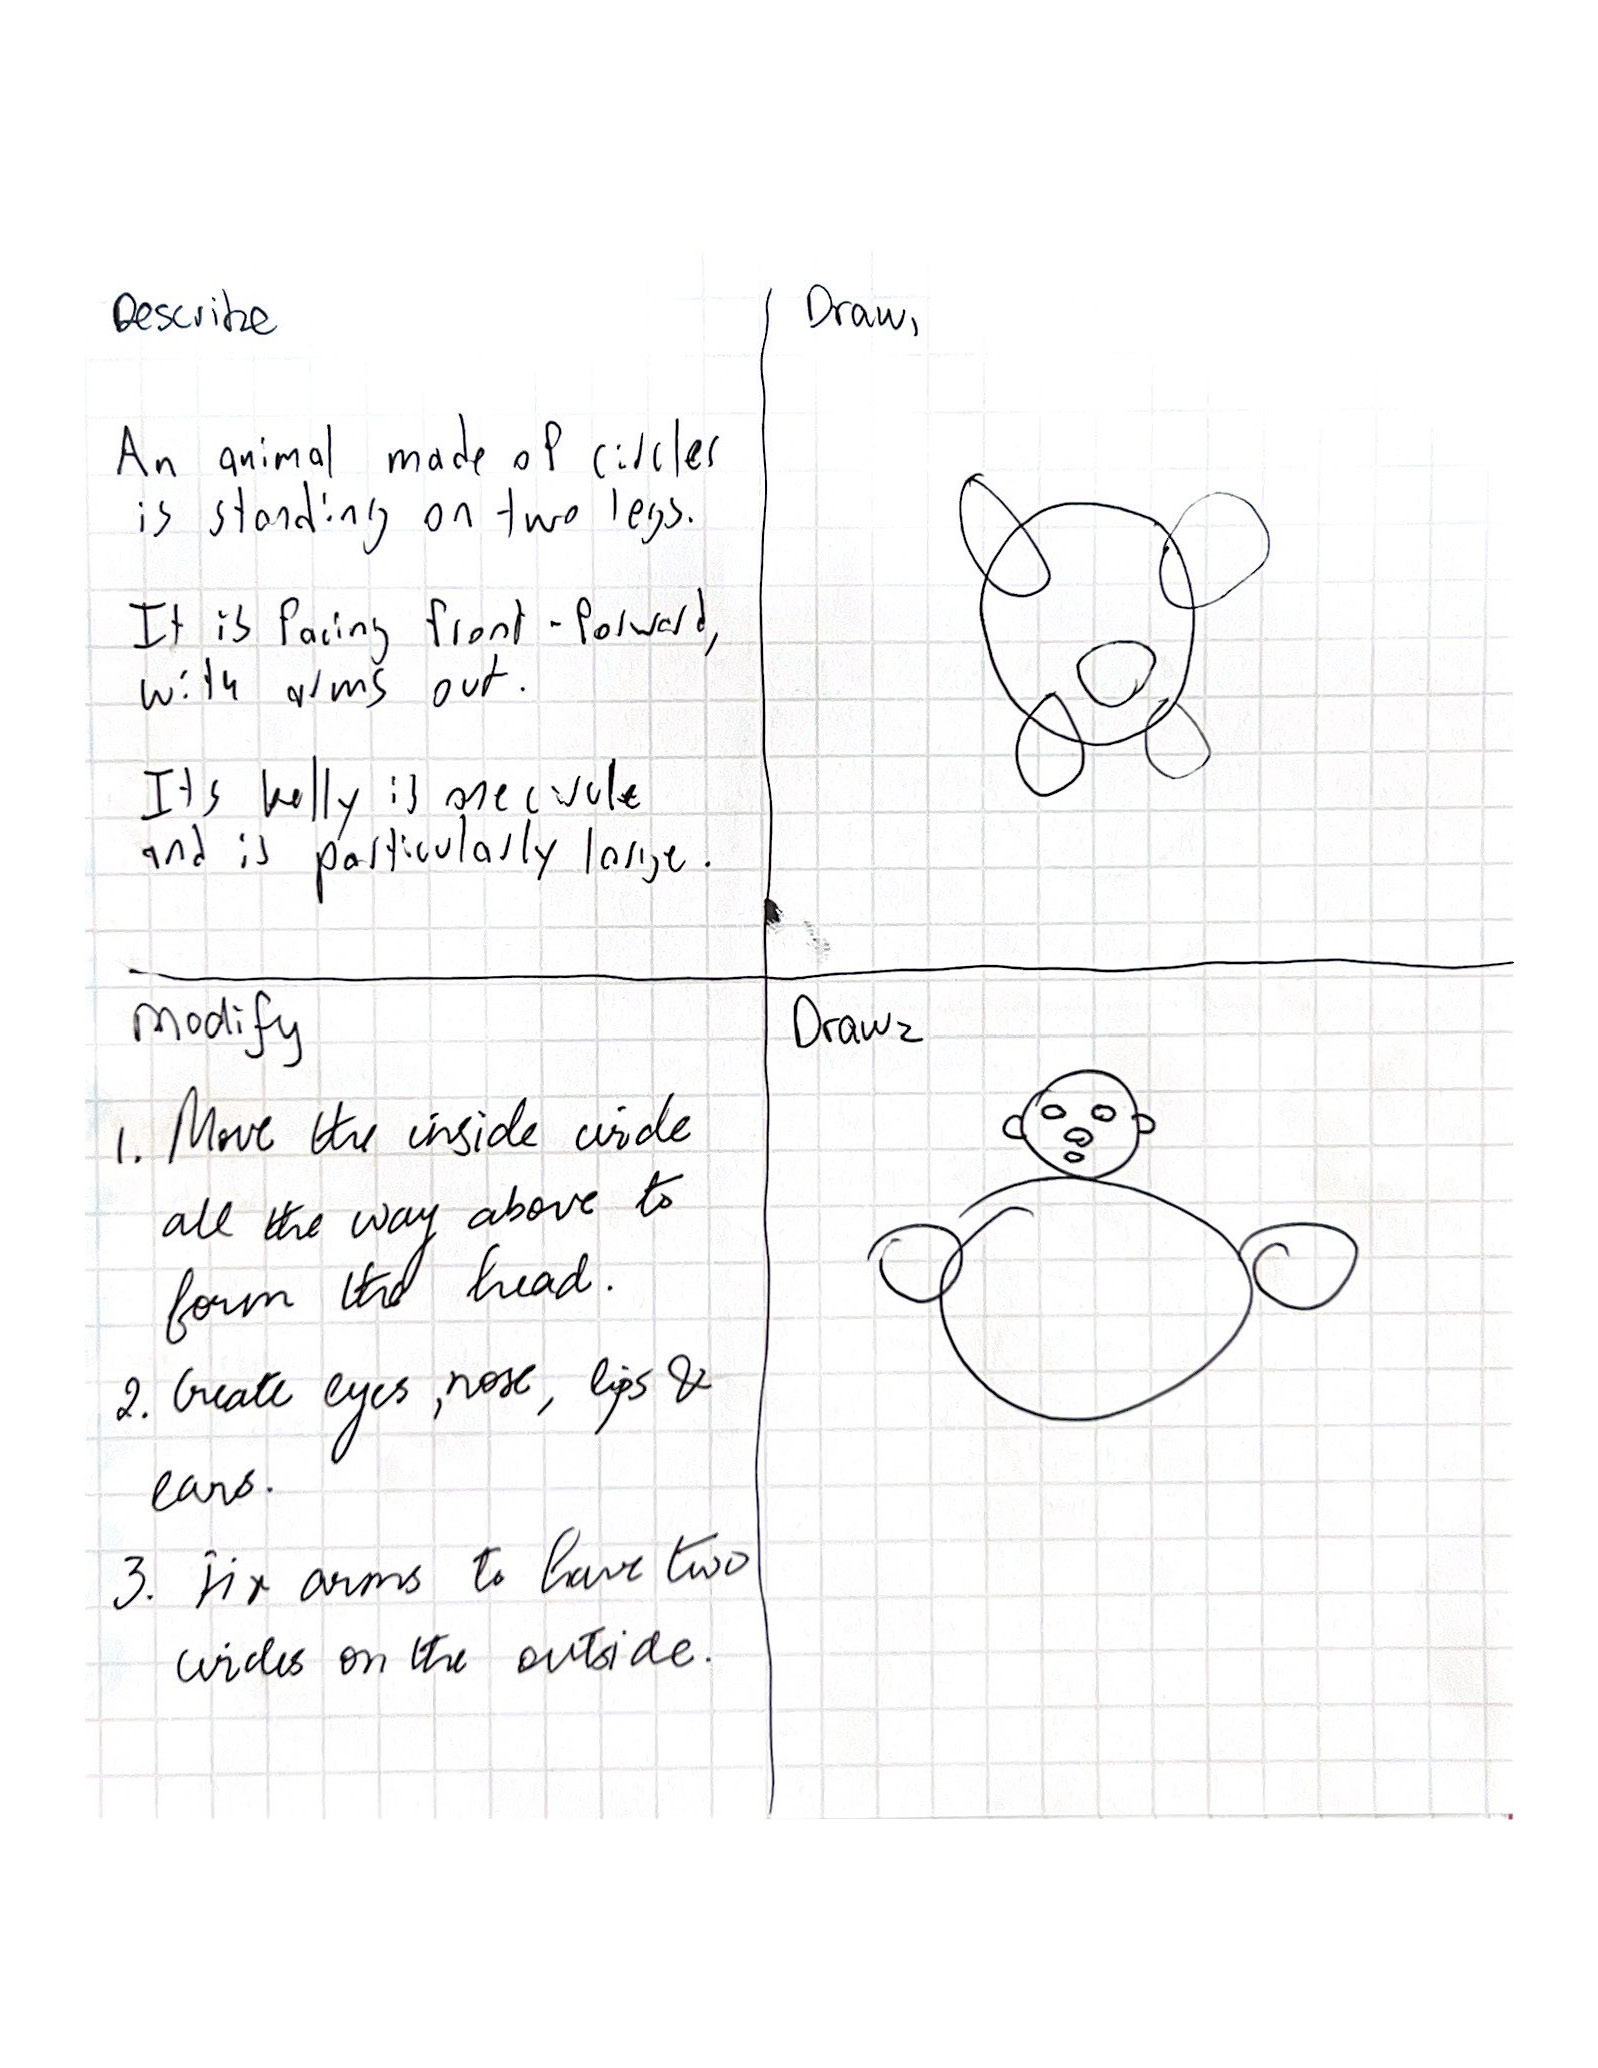 Describe
An animal made of circles
is standing on two legs.
It is facing front-forward,
with arms out.
Its belly is one circle
and is particularly large.
Draw1
Modify
1. Move the inside circle
all the way above to
form the head.
2. Create eyes, nose, lips &
ears.
3. Fix arms to have two
circles on the outside.
Draw2